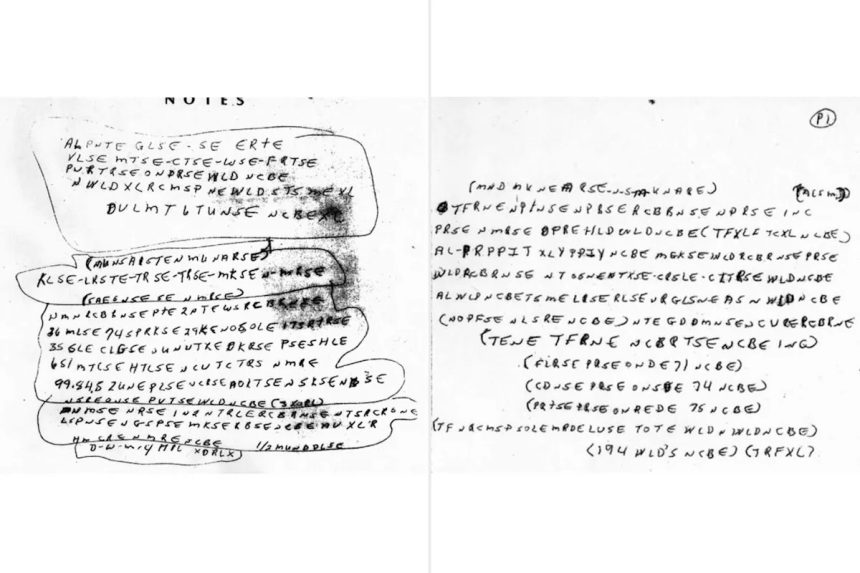 NOTES
ALPNTE GLSE - SE ERTE
VLSE MTSE-CTSE-WSE-FRTSE
PNRTRSEONDRSEWLD NCBE
NWLDXLRCMSP NEWLDSTSMEXL
DULMT6TUNSE NCBEXL
(MUNSARSTEN MUNARSE)
KLSE-LRSTE-TRSE-TRSE-MKSEN-MRSE
(SAE6NSE SE NMRSE)
36 MLSE 74SPRKSE 29KENOSOLE
35 GLE CLGSE UNUTKE DKRSE PSESHLE
651 MTLSE HTLSE NCUTCTRS NMRE
99.84S ZUNEPLSE NCRSE AOLTSE NSKSE
NSREONSE PUTSEWLDNCBE (3XORL)
LSPNSENGSPSE MKSERBSENCBE AUXLR
D-W-M-4 MIL XDRLX
1/2 MUNDDLSE
P1
(MND MKNEARSE-N-S-M-KNARE)
(ALSM)
TFRNENPTNSENPBSERCBBNSE NPRSE INC
PRSE NMRSE OPREHLDWLDNCBE (TFXLF TCXL NCBE)
AL-PRPPIT XLYPPIY NCBE MGKSEWLDRCBRNSEPRSE
WLDRCBRNSE NTOSNENTXSE-CRSLE-CITRSEWLDNCBE
ALWLDNCBETSMELRSERLSEURGLSNEASNWLDNCBE
(NOPFSENLSRENCBE) NTEGDDMNSENCURERCBRNE
(TENE TFRNE NCBRTSENCBEING)
(FLRSE PRSE ONDE 71 NCBE)
(CDNSE PRSE ONSDE 74 NCBE)
(PRTSE PRSE ONREDE 75 NCBE)
(TFNRCMSPSOLEMRDELUSE TOTE WLDNWLDNCBE)
(194 WLD'S NCBE) (TRFXL)